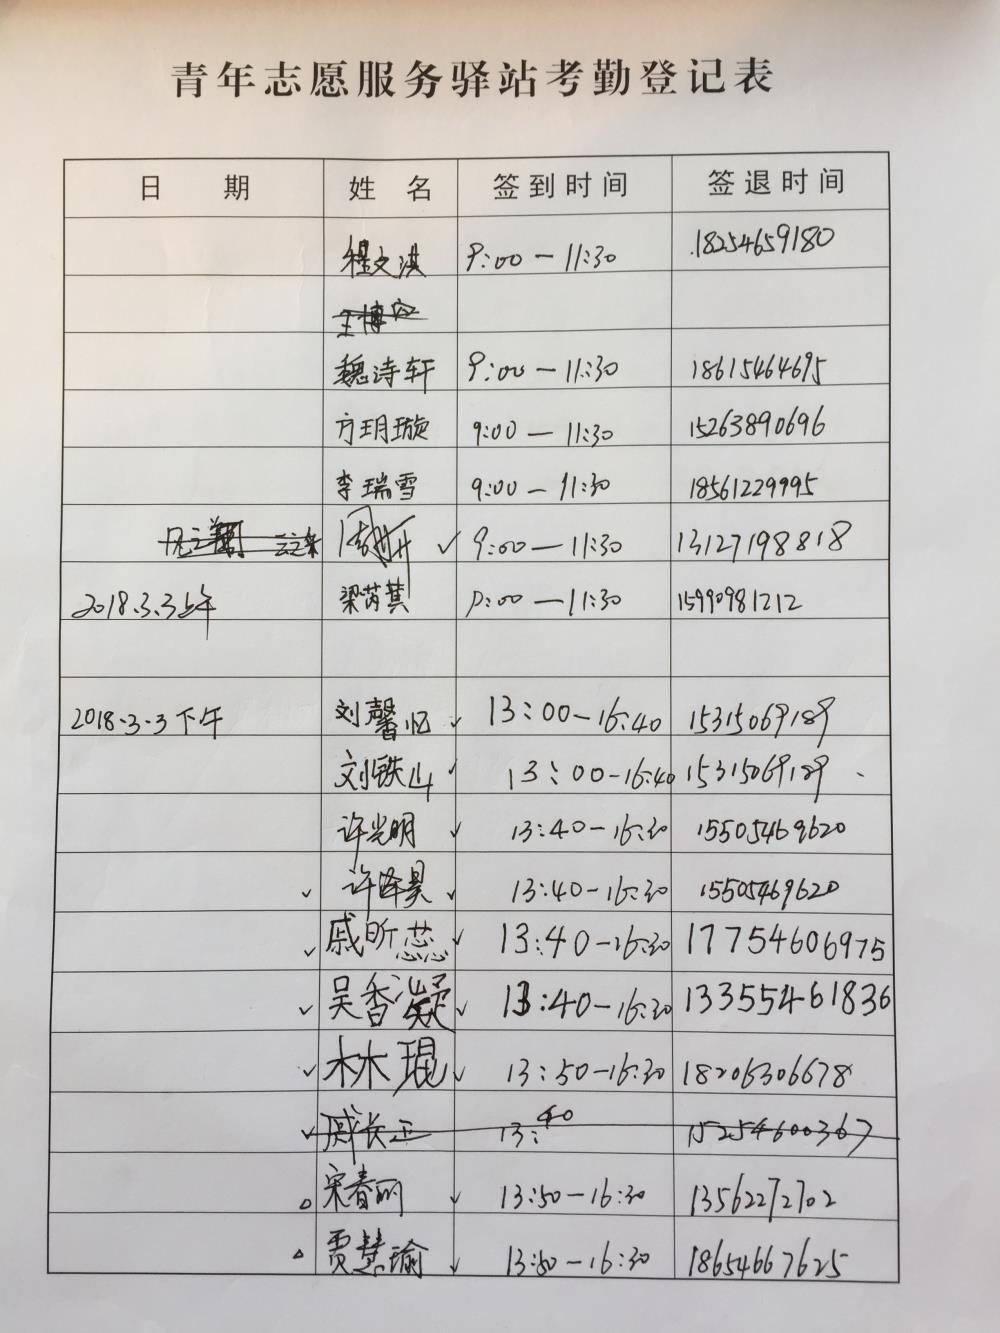 青年志愿服务驿站考勤登记表
日 期 姓 名 签到时间 签退时间
程文淇 9:00-11:30 18254659180
王博
魏诗轩 9:00-11:30 18615464695
方玥璇 9:00-11:30 15263890696
李瑞雪 9:00-11:30 18561229995
周 ✓ 9:00-11:30 13127198818
2018.3.3上午 梁芮萁 9:00-11:30 15990981212
2018.3.3下午 刘馨忆 ✓ 13:00-16:40 15315069189
刘铁山 ✓ 13:00-16:40 15315069189
许光明 ✓ 13:40-16:30 15505469620
✓ 许泽昊 ✓ 13:40-16:30 15505469620
✓ 戚昕蕊 ✓ 13:40-16:30 17754606975
✓ 吴香凝 13:40-16:30 13355461836
✓ 林琨 ✓ 13:50-16:30 18206306678
✓ 戚长正 13:40 15254600367
△ 宋春丽 ✓ 13:50-16:30 13562272702
△ 贾慧瑜 ✓ 13:50-16:30 18654667625